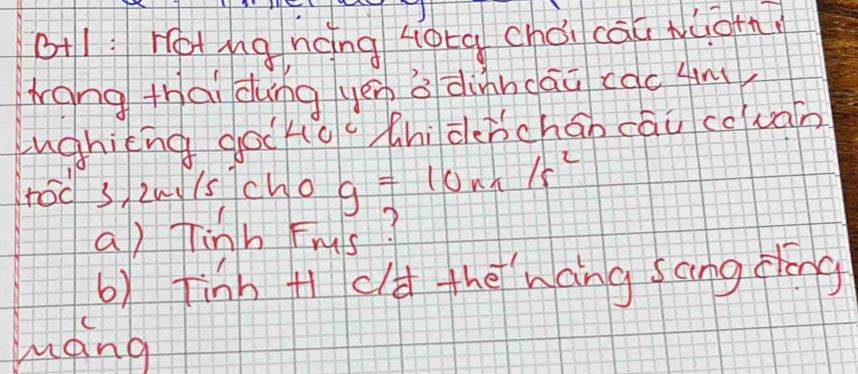 Bt1: Một ng nặng 40kg chơi cầu trượt từ
trạng thái đứng yên ở đỉnh cầu cao 4m,
nghiêng góc 40° khi đến chân cầu có vận
tốc 3,2m/s cho g = 10m/s²
a) Tính Fms?
b) Tính H c/đ thế năng sang động
năng